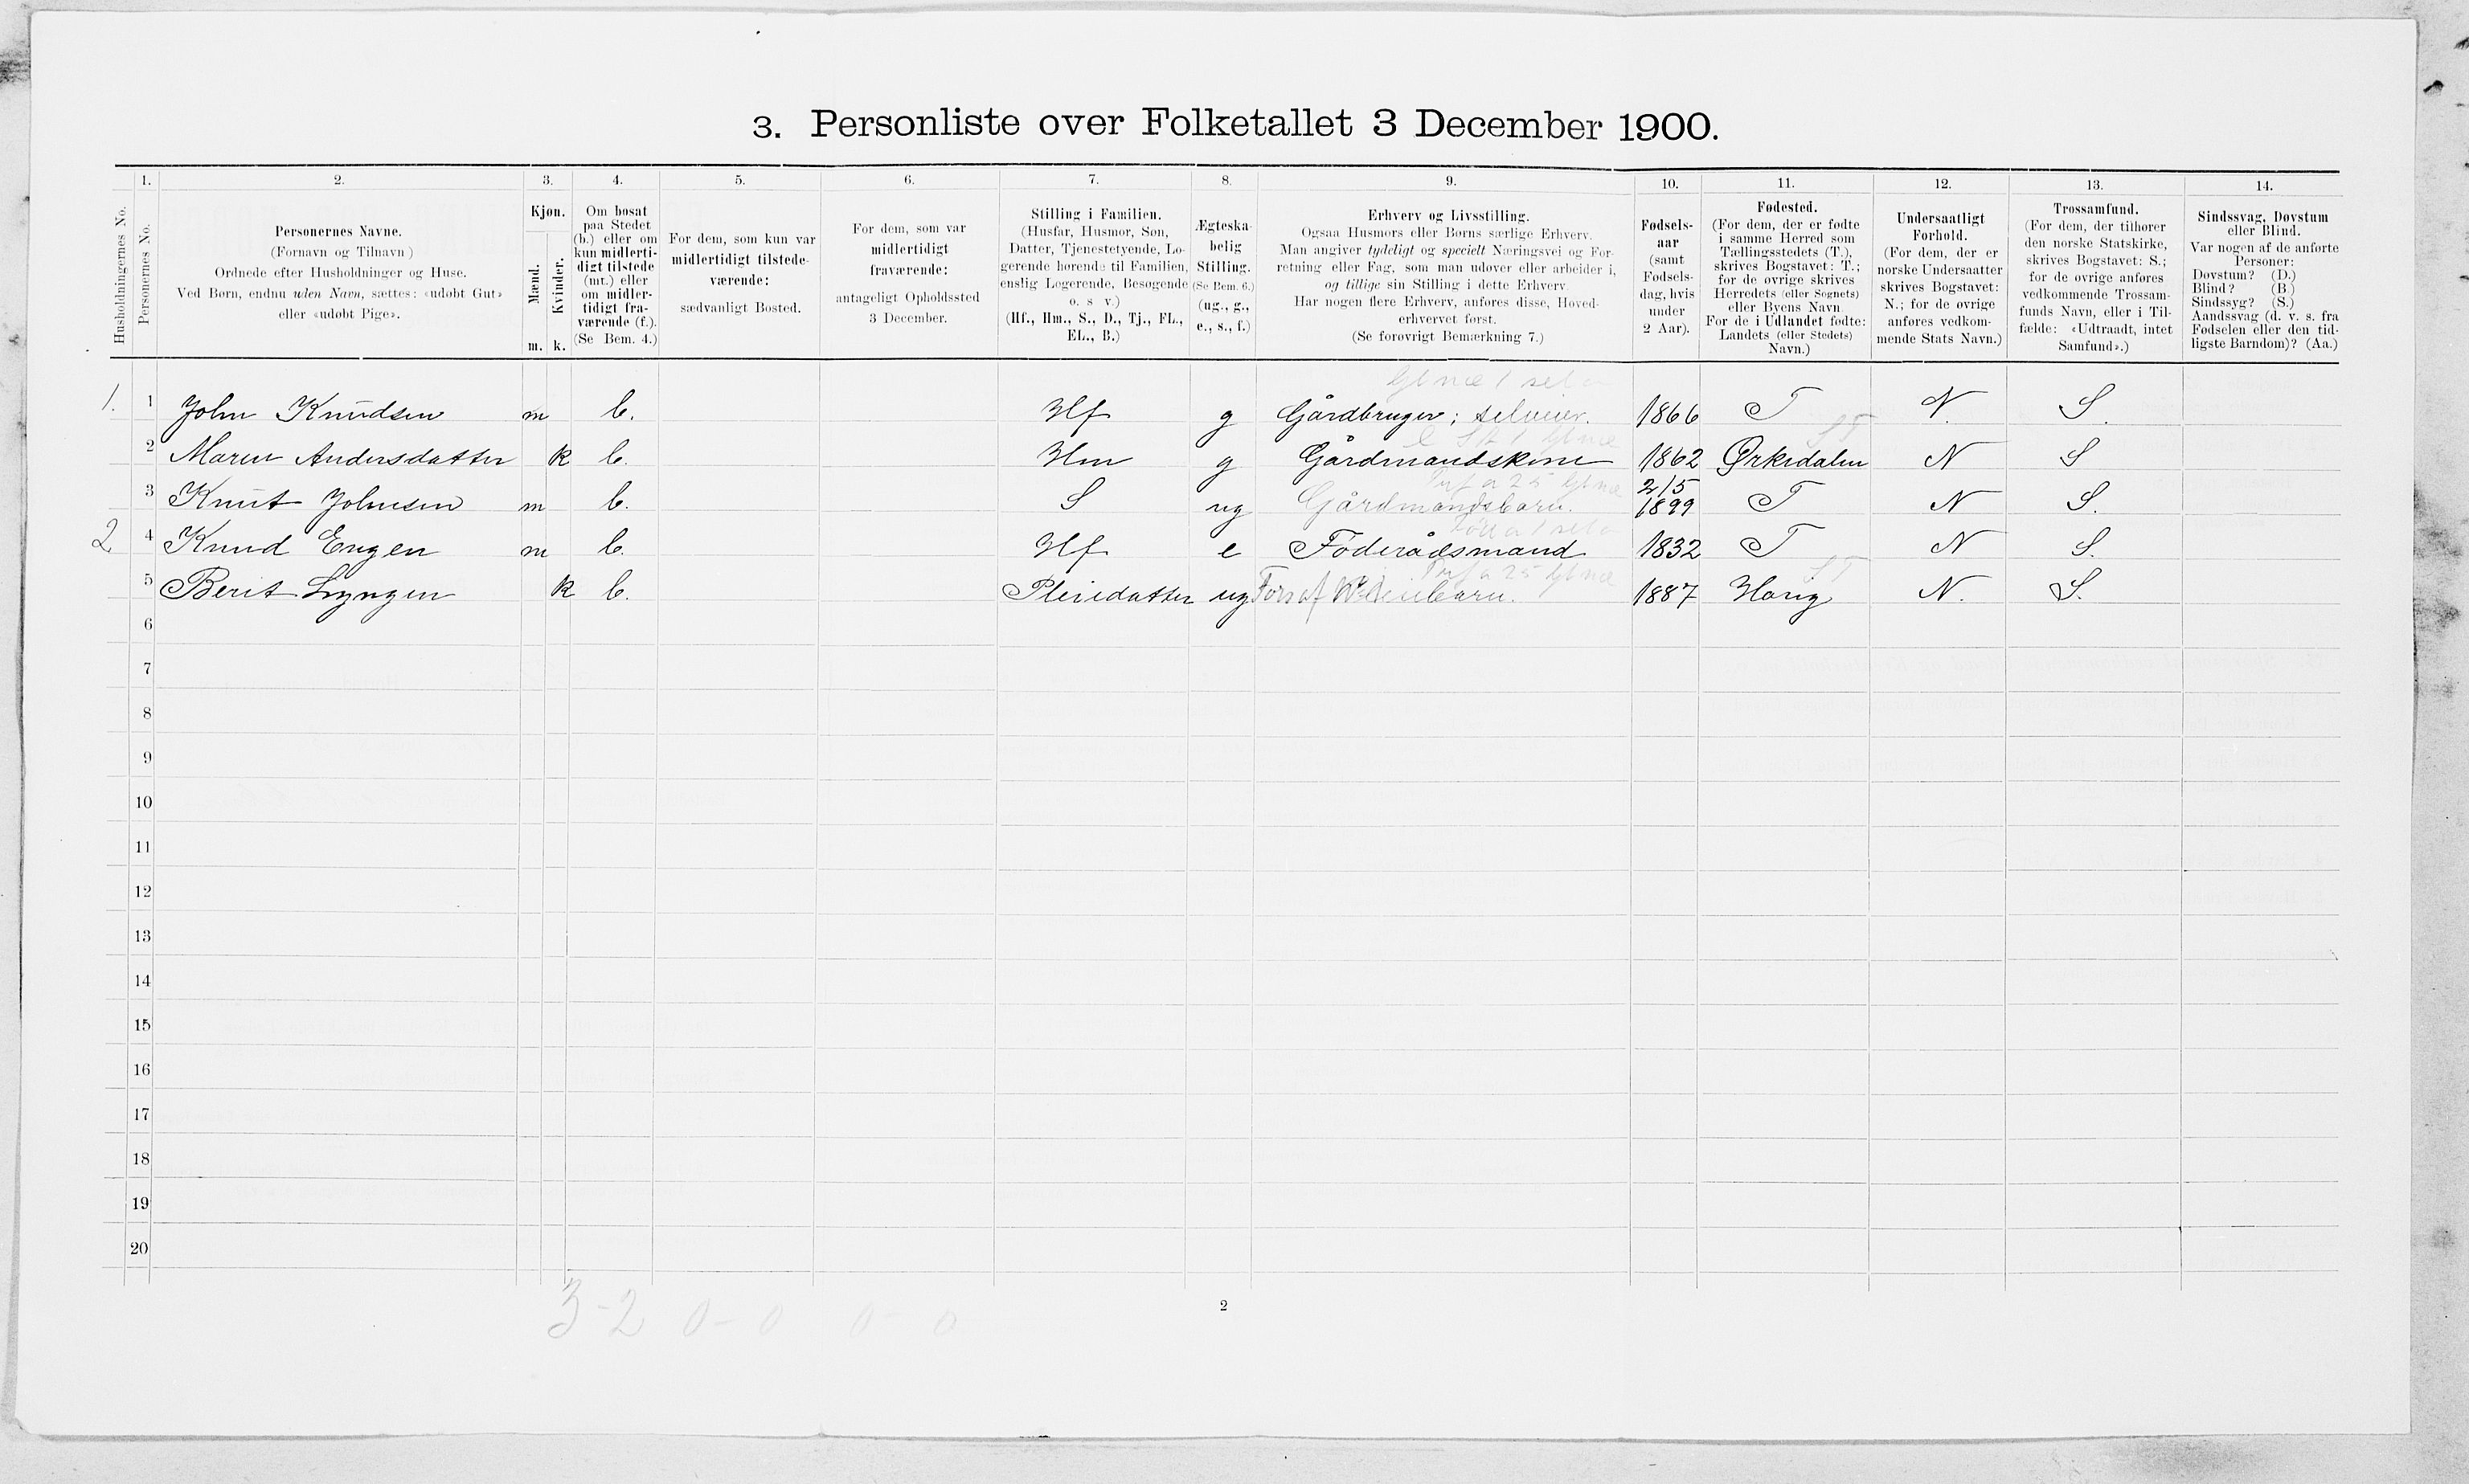 3. Personliste over Folketallet 3 December 1900.
1. 2. 3. 4. 5. 6. 7. 8. 9. 10. 11. 12. 13. 14.
Husholdningernes No.
Personernes No.
Personernes Navne.
(Fornavn og Tilnavn)
Ordnede efter Husholdninger og Huse.
Ved Børn, endnu uden Navn, sættes: «udøbt Gut»
eller «udøbt Pige».
Kjøn.
Mænd.
Kvinder.
m. k.
Om bosat
paa Stedet
(b.) eller om
kun midlerti-
digt tilstede
(mt.) eller
om midler-
tidigt fra-
værende (f.).
(Se Bem. 4.)
For dem, som kun var
midlertidigt tilstede-
værende:
sædvanligt Bosted.
For dem, som var
midlertidigt
fraværende:
antageligt Opholdssted
3 December.
Stilling i Familien.
(Husfar, Husmor, Søn,
Datter, Tjenestetyende, Lo-
gerende hørende til Familien,
enslig Logerende, Besøgende
o. s v.)
(Hf., Hm., S., D., Tj., FL.,
EL., B.)
Ægteska-
belig
Stilling.
(Se Bem. 6.)
(ug., g.,
e., s., f.)
Erhverv og Livsstilling.
Ogsaa Husmors eller Børns særlige Erhverv.
Man angiver tydeligt og specielt Næringsvei og For-
retning eller Fag, som man udøver eller arbeider i,
og tillige sin Stilling i dette Erhverv.
Har nogen flere Erhverv, anføres disse, Hoved-
erhvervet først.
(Se forøvrigt Bemærkning 7.)
Fødsels-
aar
(samt
Fødsels-
dag, hvis
under
2 Aar).
Fødested.
(For dem, der er fødte
i samme Herred som
Tællingsstedets (T.),
skrives Bogstavet: T.;
for de øvrige skrives
Herredets (eller Sognets)
eller Byens Navn.
For de i Udlandet fødte:
Landets (eller Stedets)
Navn.)
Undersaatligt
Forhold.
(For dem, der er
norske Undersaatter
skrives Bogstavet:
N.; for de øvrige
anføres vedkom-
mende Stats Navn.)
Trossamfund.
(For dem, der tilhører
den norske Statskirke,
skrives Bogstavet: S.;
for de øvrige anføres
vedkommende Trossam-
funds Navn, eller i Til-
fælde: «Udtraadt, intet
Samfund».)
Sindssvag, Døvstum
eller Blind.
Var nogen af de anførte
Personer:
Døvstum? (D.)
Blind? (B.)
Sindssyg? (S.)
Aandssvag (d. v. s. fra
Fødselen eller den tid-
ligste Barndom)? (Aa.)
1. 1 John Knudsen m b. Hf g Gårdbruger; selveier. 1866 T N. S.
2 Maren Andersdatter k b. Hm g Gårdmandskone 1862 Ørkedalen N S
3 Knut Johnsen m b. S ug Gårdmandsbarn. 2/5 1899 T N S.
2 4 Knud Engen m b. Hf e Föderådsmand 1832 T N S.
5 Berit Lyngen k b. Pleiedatter ug Fors af 1887 N. S.
6
7
8
9
10
11
12
13
14
15
16
17
18
19
20
3-2 0-0 0-0
2